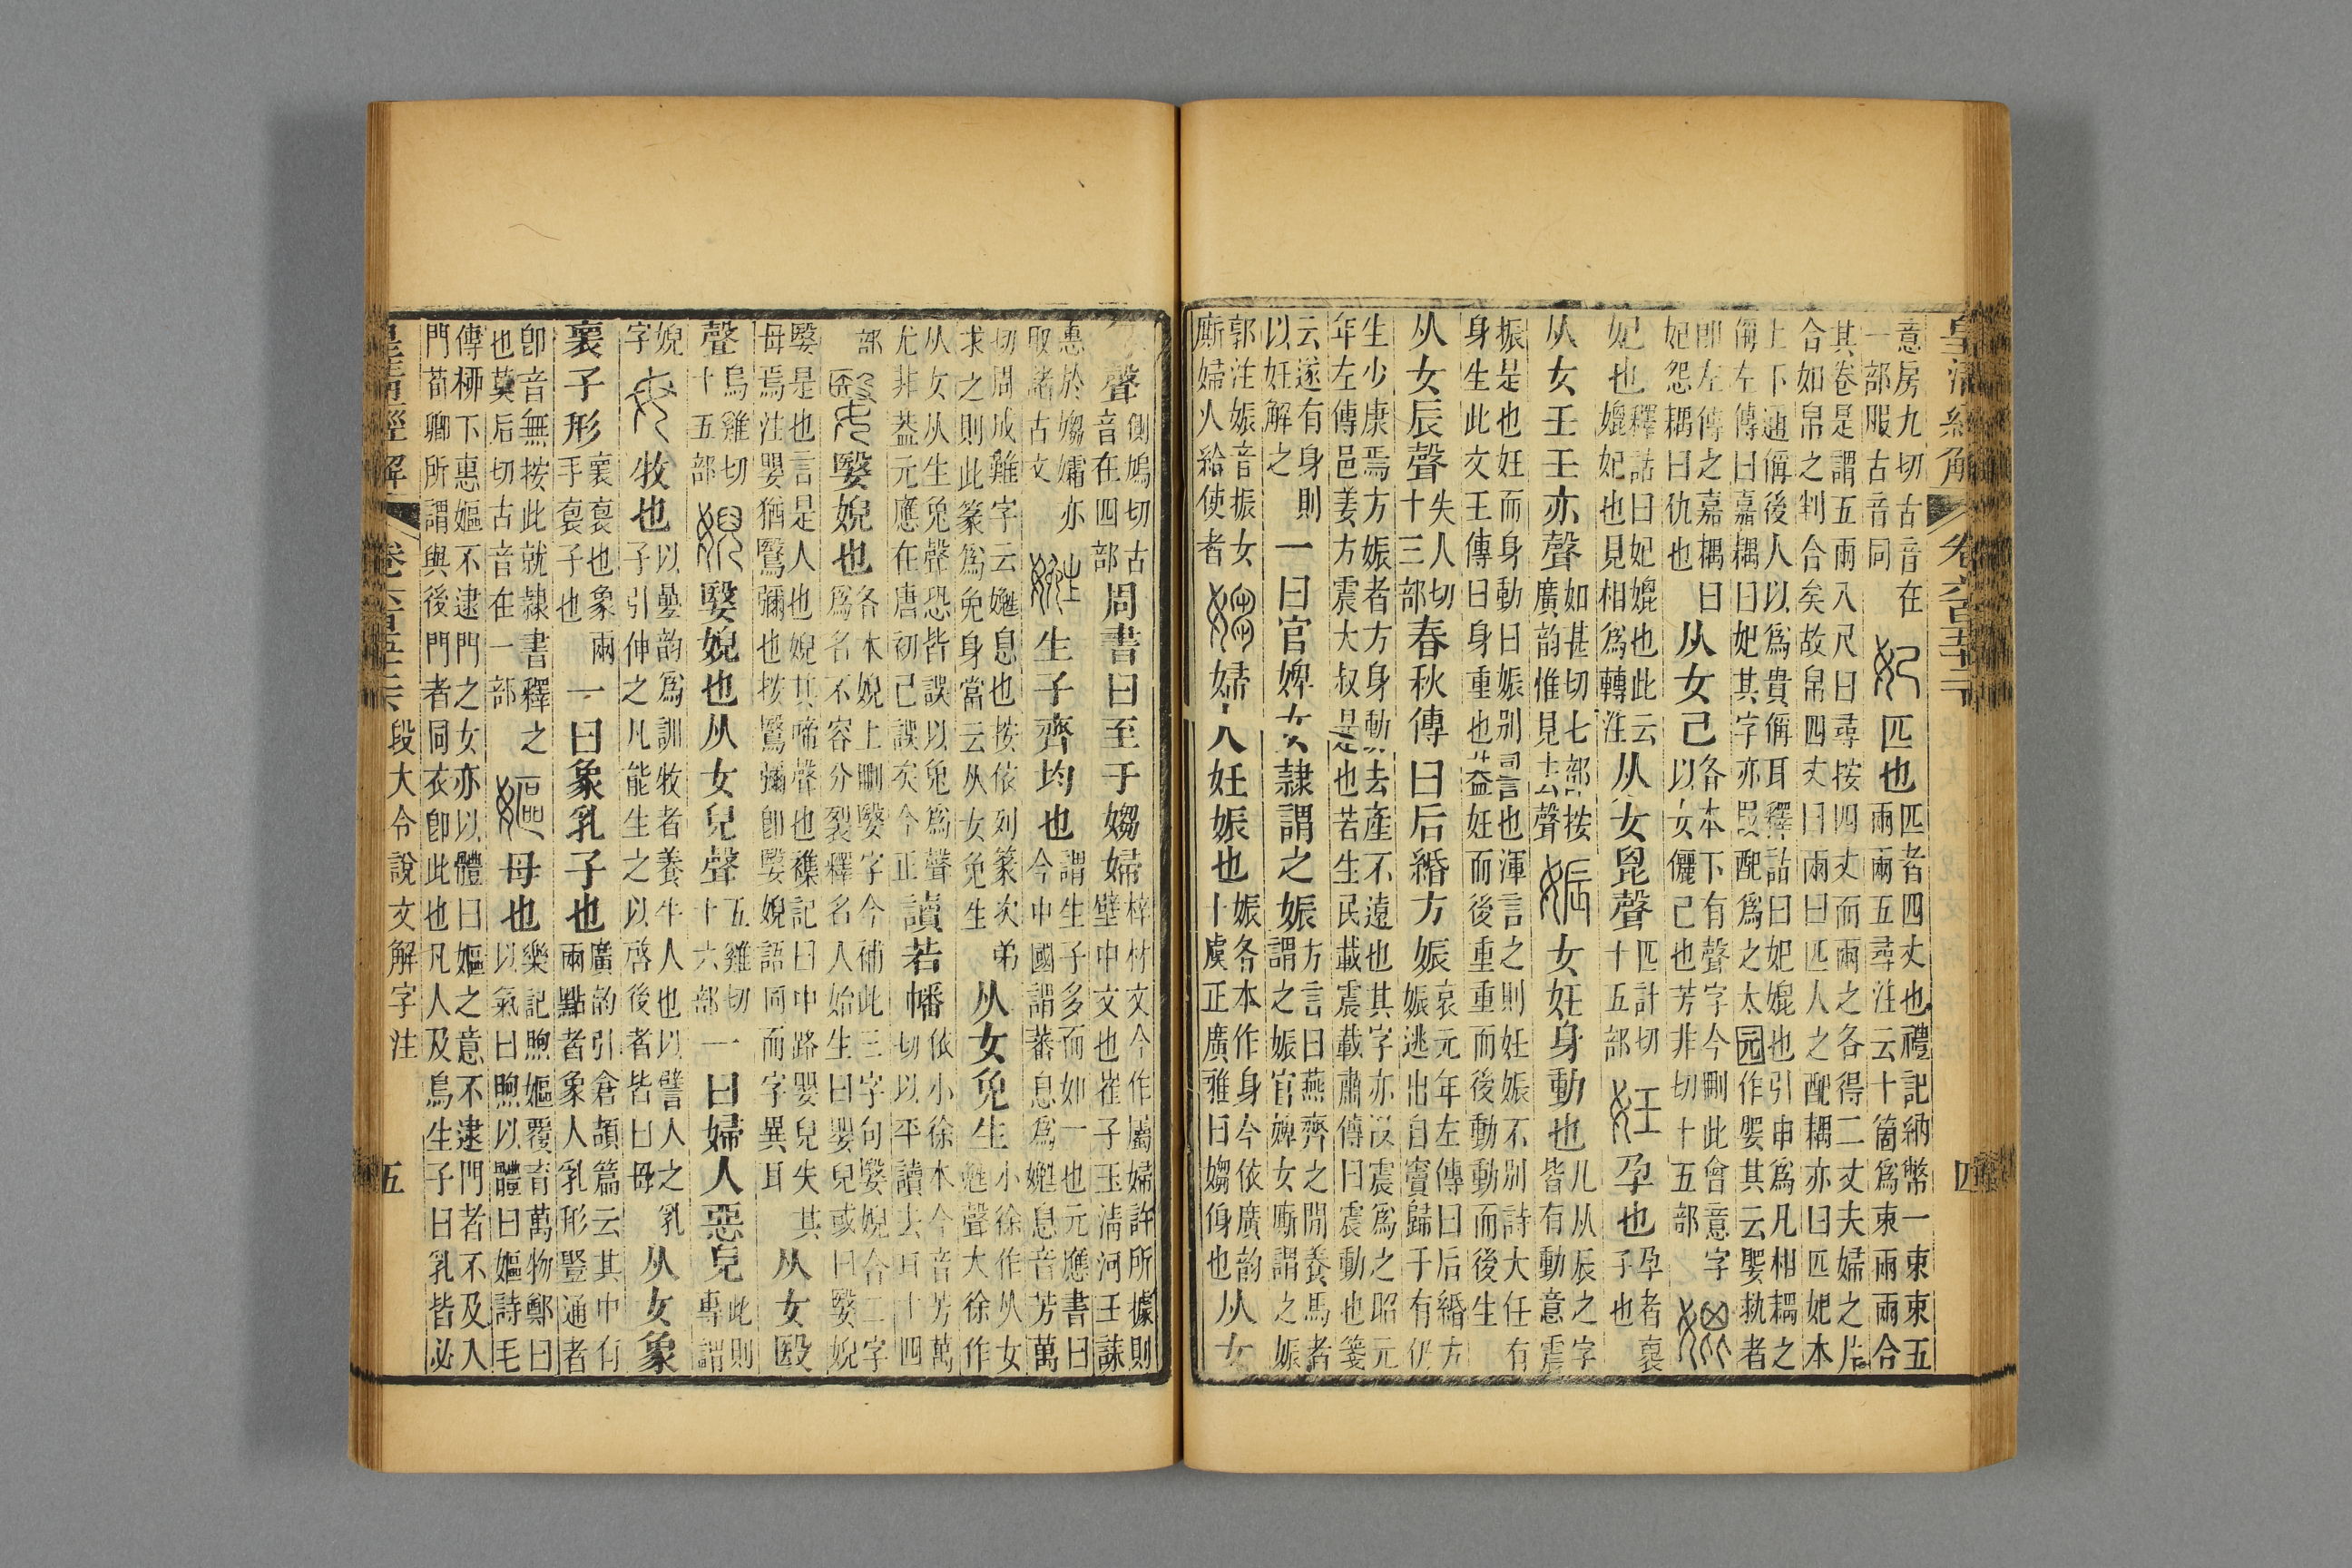 意房九切古音在
一部 古音同
妃匹也
匹者四丈也禮記納幣一束束五
兩兩五尋注云十箇爲束兩兩合
其卷是謂五兩八尺曰尋按四丈而兩之各得二丈夫婦之片
合如帛之判合矣故帛四丈曰兩曰匹人之配耦亦曰匹妃本
上下通偁後人以爲貴偁耳釋詁曰妃媲也引申爲凡相耦之
偁左傳曰嘉耦曰妃其字亦叚配爲之太 作 其云 執者
卽左傳之嘉耦曰
妃怨耦曰仇也
从女己
各本下有聲字今刪此會意字
以女儷己也芳非切十五部
媲
妃也
釋詁曰妃媲也此云
媲妃也見相爲轉注
从女毘聲
匹計切
十五部
妊孕也
孕者褱
子也
从女壬壬亦聲
如甚切七部按
廣韵惟見去聲
娠女妊身動也
凡从辰之字
皆有動意震
振是也妊而身動曰娠别詞也渾言之則妊娠不别詩大任有
身生此文王傳曰身重也葢妊而後重重而後動動而後生
从女辰聲
失人切
十三部
春秋傳曰后緡方娠
哀元年左傳曰后緡方
娠逃出自竇歸于有仍
生少康焉方娠者方身動去產不遠也其字亦叚震爲之昭元
年左傳邑姜方震大叔是也若生民載震載肅傳曰震動也箋
云遂有身則
以妊解之
一曰官婢女隸謂之娠
方言曰燕齊之閒養馬者
謂之娠官婢女廝謂之娠
郭注娠音振女
廝婦人給使者
媰婦人妊娠也
娠各本作身今依廣韵
十虞正廣雅曰媰侮也
从女
聲
側鳩切古
音在四部
周書曰至于媰婦
梓材文今作屬婦許所據則
壁中文也崔子玉清河王誄
惠於媰孀亦
取諸古文
嬎生子齊均也
謂生子多而如一也元應書曰
今中國謂蕃息爲嬎息音芳萬
切周成難字云嬎息也按依列篆次弟
求之則此篆爲免身當云从女免生
从女免生
小徐作从女
嬎聲大徐作
从女从生免聲恐皆誤以免爲聲
尤非葢元應在唐初已誤矣今正
讀若幡
依小徐本今音芳萬
切以平讀去耳十四
部
嫛嫛婗也
各本婗上刪嫛字今補此三字句嫛婗合二字
爲名不容分裂釋名人始生曰嬰兒或曰嫛婗
嫛是也言是人也婗其啼聲也襍記曰中路嬰兒失其
母焉注嬰猶鷖彌也按鷖彌卽嫛婗語同而字異耳
从女殹
聲
烏雞切
十五部
婗嫛婗也从女兒聲
五雞切
十六部
一曰婦人惡皃
此則
專謂
婗
字
母牧也
以曡韵爲訓牧者養牛人也以譬人之乳
子引伸之凡能生之以啓後者皆曰母
从女象
褱子形
褱裦也象兩
手裦子也
一曰象乳子也
廣韵引倉頡篇云其中有
兩點者象人乳形豎通者
卽音無按此就隸書釋之
也莫后切古音在一部
嫗母也
樂記煦嫗覆育萬物鄭曰
以氣曰煦以體曰嫗詩毛
傳柳下惠嫗不逮門之女亦以體曰嫗之意不逮門者不及入
門荀卿所謂與後門者同衣卽此也凡人及鳥生子曰乳皆必
皇清經解 卷六百五十 段大令說文解字注 五